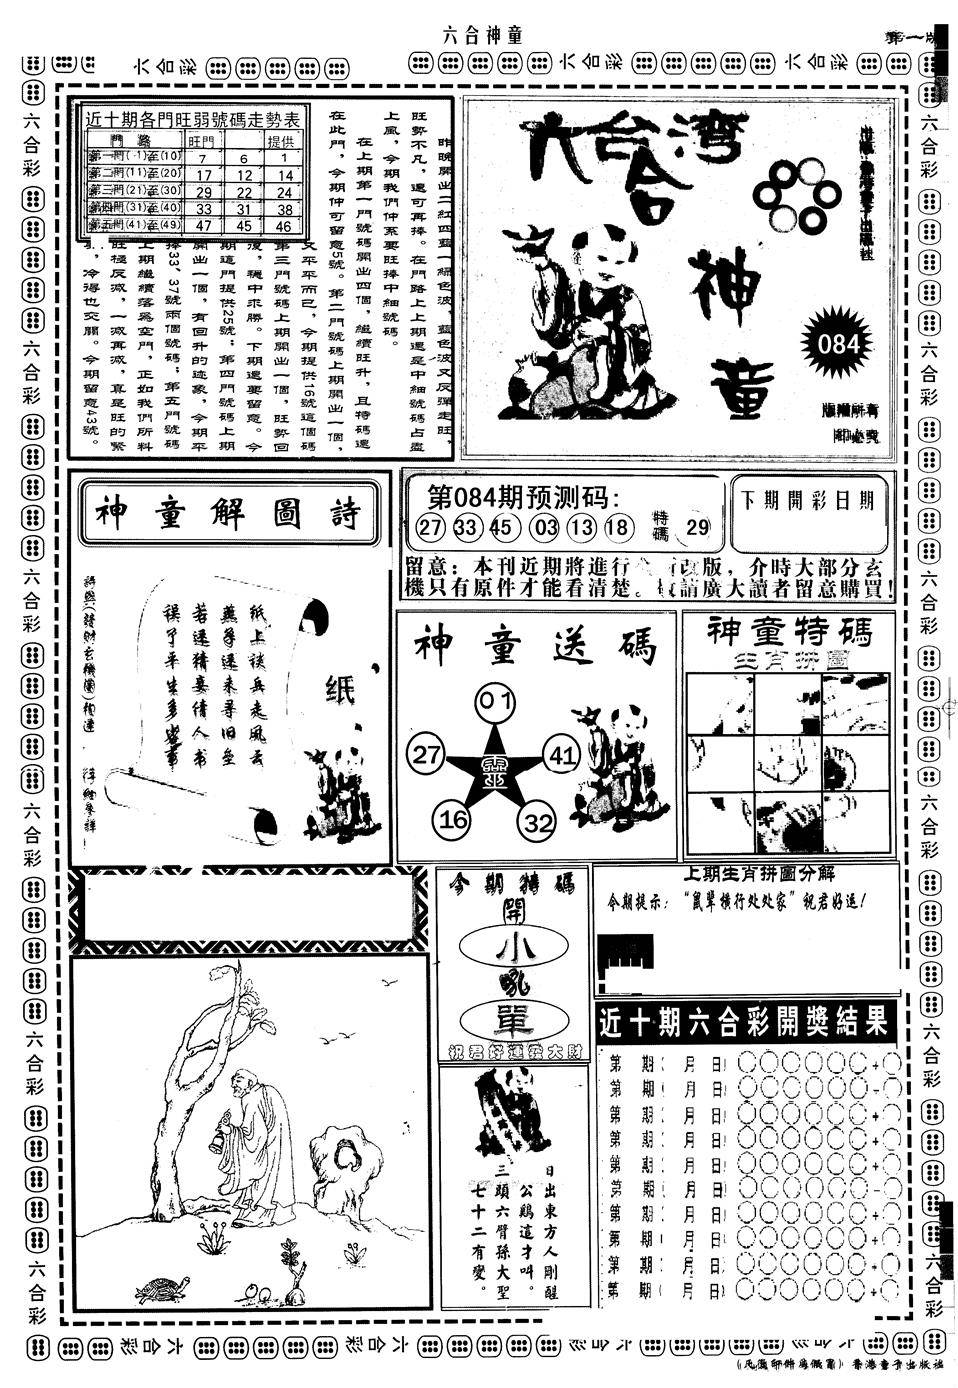 六合神童
第一版
六合彩
六合彩
六合彩
近十期各門旺弱號碼走勢表
門 路 旺門 提供
第一門(1)至(10) 7 6 1
第二門(11)至(20) 17 12 14
第三門(21)至(30) 29 22 24
第四門(31)至(40) 33 31 38
第五門(41)至(49) 47 45 46
昨晚開出二紅四藍一綠色波，藍色波又反彈走旺，
旺勢不凡，還可再捧。在門路上上期還是中細號碼占盡
上風，今期我們仲系要旺捧中細號碼。
在上期第一門號碼開出四個，繼續旺升，且特碼還
在此門，今期仲可留意5號。第二門號碼上期開出一個，
又平平而已，今期提供16號這個碼
第三門號碼上期開出一個，旺勢回
慢，穩中求勝。下期還要留意。今
期這門提供25號；第四門號碼上期
開出一個，有回升的迹象，今期平
捧33、37號兩個號碼；第五門號碼
上期繼續落爲空門，正如我們所料
旺極反減，一減再減，真是旺的緊
，冷得也交關。今期留意43號。
六合台湾
神
童
084
版權所有
翻印必究
神童解圖詩
紙上談兵走風云
燕子還來尋旧壘
若還猜妾倩人書
误了平生多少事
纸
第084期预测码：
27 33 45 03 13 18 特碼 29
下期開彩日期
留意：本刊近期將進行 改版，介時大部分玄
機只有原件才能看清楚。敬請廣大讀者留意購買！
神童送碼
01
27
41
16
32
靈
神童特碼
生肖拼圖
上期生肖拼圖分解
今期提示：“鼠輩横行处处家”祝君好运！
今期特碼
開
小
吼
單
祝君好運發大財
日出東方人剛醒
公鷄這才叫。
三頭六臂孫大聖
七十二有變。
近十期六合彩開獎結果
第 期 月 日 +
第 期 月 日
第 期 月 日 +
第 期 月 日 +
第 期 月 日 +
第 期 月 日
第 期 月 日 +
第 期 月 日
第 期 月 日 +
第 期 月 日 +
六合彩
六合彩
六合彩
六合彩
香港童子出版社